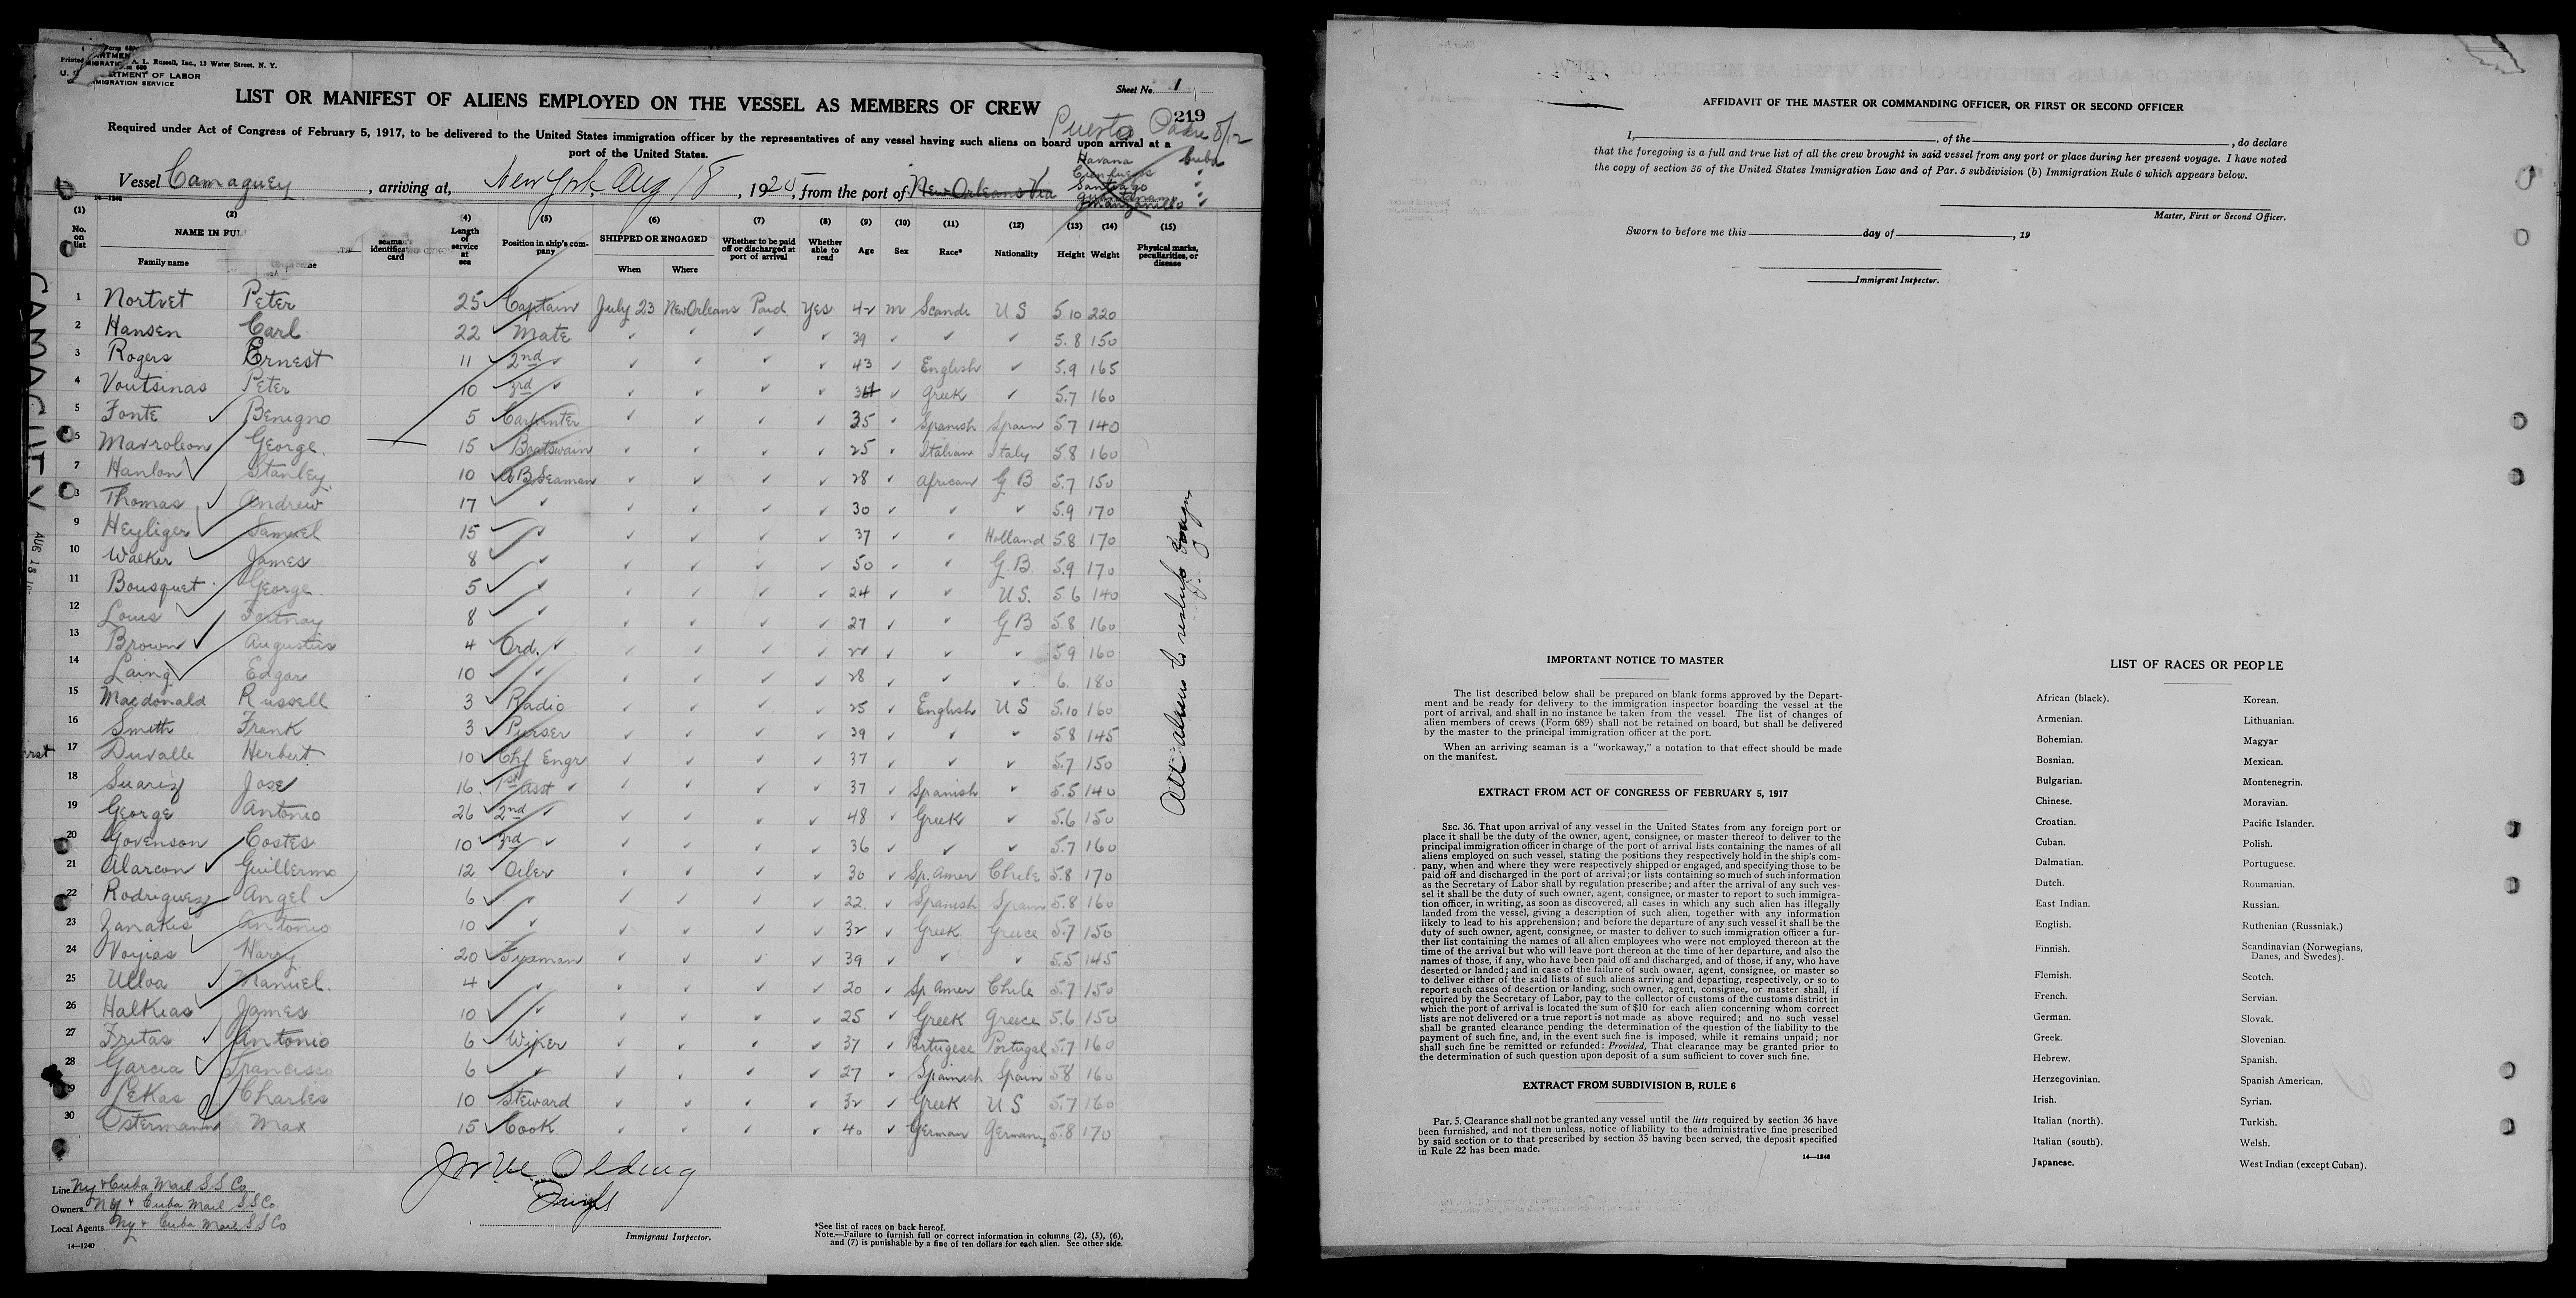 Printed
A. L. Russell, Inc., 13 Water Street, N. Y.
DEPARTMENT OF LABOR
IMMIGRATION SERVICE
Sheet No. 1
LIST OR MANIFEST OF ALIENS EMPLOYED ON THE VESSEL AS MEMBERS OF CREW
219
Puerto Padre 8/12
Required under Act of Congress of February 5, 1917, to be delivered to the United States immigration officer by the representatives of any vessel having such aliens on board upon arrival at a
port of the United States.
Havana Cuba
Cienfuegos "
Santiago "
Guantanamo "
Manzanillo "
Vessel Camaguey, arriving at, New York, Aug 18, 1925, from the port of New Orleans Via
14—1240
(1) (2) (4) (5) (6) (7) (8) (9) (10) (11) (12) (13) (14) (15)
No. on list
NAME IN FUL
Family name
seaman's identification card
Length of service at sea
Position in ship's company
SHIPPED OR ENGAGED
When Where
Whether to be paid off or discharged at port of arrival
Whether able to read
Age Sex Race* Nationality Height Weight
Physical marks, peculiarities, or disease
1 Nortvet Peter 25 Captain July 23 New Orleans Paid Yes 42 m Scande U S 5 10 220
2 Hansen Carl 22 Mate ✓ ✓ ✓ ✓ 39 ✓ ✓ ✓ 5.8 150
3 Rogers Ernest 11 2nd ✓ ✓ ✓ ✓ ✓ 43 ✓ English ✓ 5.9 165
4 Voutsinas Peter 10 3rd ✓ ✓ ✓ ✓ ✓ 34 ✓ Greek ✓ 5.7 160
5 Fonte Benigno 5 Carpenter ✓ ✓ ✓ ✓ 35 ✓ Spanish Spain 5.7 140
Mavroleon George 15 Boatswain ✓ ✓ ✓ ✓ 25 ✓ Italian Italy 5 8 160
7 Hanlon Stanley 10 A B Seaman ✓ ✓ ✓ ✓ 28 ✓ African G B 5.7 150
Thomas Andrew 17 ✓ ✓ ✓ ✓ ✓ 30 ✓ ✓ ✓ 5.9 170
9 Heyliger Samuel 15 ✓ ✓ ✓ ✓ ✓ 37 ✓ ✓ Holland 5.8 170
10 Walker James 8 ✓ ✓ ✓ ✓ ✓ 50 ✓ ✓ G. B. 5.9 170
11 Bousquet George 5 ✓ ✓ ✓ ✓ ✓ 24 ✓ ✓ U S. 5 6 140
12 Louis Fortnay 8 ✓ ✓ ✓ ✓ ✓ 27 ✓ ✓ G B 5.8 160
13 Brown Augustus 4 Ord. ✓ ✓ ✓ ✓ ✓ 22 ✓ ✓ ✓ 5 9 160
14 Laing Edgar 10 ✓ ✓ ✓ ✓ ✓ 28 ✓ ✓ ✓ 6. 180
15 Macdonald Russell 3 Radio ✓ ✓ ✓ ✓ 25 ✓ English U S 5.10 160
16 Smith Frank 3 Purser ✓ ✓ ✓ ✓ 39 ✓ ✓ ✓ 5 8 145
17 Duvalle Herbert 10 Chf Engr ✓ ✓ ✓ ✓ 37 ✓ ✓ ✓ 5.7 150
18 Suarez Jose 16 1st Asst ✓ ✓ ✓ ✓ 37 ✓ Spanish ✓ 5.5 140
19 George Antonio 26 2nd ✓ ✓ ✓ ✓ ✓ 48 ✓ Greek ✓ 5.6 150
20 Govenson Costes 10 3rd ✓ ✓ ✓ ✓ ✓ 36 ✓ ✓ ✓ 5.7 160
21 Alarcon Guillermo 12 Oiler ✓ ✓ ✓ ✓ 30 ✓ Sp. Amer Chile 5.8 170
22 Rodriguez Angel 6 ✓ ✓ ✓ ✓ ✓ 22 ✓ Spanish Spain 5.8 160
23 Zanakis Antonio 10 ✓ ✓ ✓ ✓ ✓ 32 ✓ Greek Greece 5.7 150
24 Voyias Harry 20 Fireman ✓ ✓ ✓ ✓ 39 ✓ ✓ ✓ 5.5 145
25 Ulloa Manuel 4 ✓ ✓ ✓ ✓ ✓ 20 ✓ Sp Amer Chile 5.7 150
26 Halkias James 10 ✓ ✓ ✓ ✓ ✓ 25 ✓ Greek Greece 5.6 150
27 Fritas Antonio 6 Wiper ✓ ✓ ✓ ✓ 37 ✓ Portugese Portugal 5.7 160
28 Garcia Francisco 6 ✓ ✓ ✓ ✓ ✓ 27 ✓ Spanish Spain 5 8 160
Lekas Charles 10 Steward ✓ ✓ ✓ ✓ 32 ✓ Greek U S 5.7 160
30 Ostermann Max 15 Cook ✓ ✓ ✓ ✓ 40 ✓ German Germany 5.8 170
All aliens to reship foreign
CAMAGUEY
AUG 18
Line Ny & Cuba Mail S S Co
Owners N Y & Cuba Mail S S Co
Local Agents Ny & Cuba Mail S S Co
14—1240
Immigrant Inspector.
*See list of races on back hereof.
Note.—Failure to furnish full or correct information in columns (2), (5), (6),
and (7) is punishable by a fine of ten dollars for each alien. See other side.
AFFIDAVIT OF THE MASTER OR COMMANDING OFFICER, OR FIRST OR SECOND OFFICER
I, , of the , do declare
that the foregoing is a full and true list of all the crew brought in said vessel from any port or place during her present voyage. I have noted
the copy of section 36 of the United States Immigration Law and of Par. 5 subdivision (b) Immigration Rule 6 which appears below.
Master, First or Second Officer.
Sworn to before me this day of , 19
Immigrant Inspector.
IMPORTANT NOTICE TO MASTER
The list described below shall be prepared on blank forms approved by the Depart-
ment and be ready for delivery to the immigration inspector boarding the vessel at the
port of arrival, and shall in no instance be taken from the vessel. The list of changes of
alien members of crews (Form 689) shall not be retained on board, but shall be delivered
by the master to the principal immigration officer at the port.
When an arriving seaman is a "workaway," a notation to that effect should be made
on the manifest.
EXTRACT FROM ACT OF CONGRESS OF FEBRUARY 5, 1917
SEC. 36. That upon arrival of any vessel in the United States from any foreign port or
place it shall be the duty of the owner, agent, consignee, or master thereof to deliver to the
principal immigration officer in charge of the port of arrival lists containing the names of all
aliens employed on such vessel, stating the positions they respectively hold in the ship's com-
pany, when and where they were respectively shipped or engaged, and specifying those to be
paid off and discharged in the port of arrival; or lists containing so much of such information
as the Secretary of Labor shall by regulation prescribe; and after the arrival of any such ves-
sel it shall be the duty of such owner, agent, consignee, or master to report to such immigra-
tion officer, in writing, as soon as discovered, all cases in which any such alien has illegally
landed from the vessel, giving a description of such alien, together with any information
likely to lead to his apprehension; and before the departure of any such vessel it shall be the
duty of such owner, agent, consignee, or master to deliver to such immigration officer a fur-
ther list containing the names of all alien employees who were not employed thereon at the
time of the arrival but who will leave port thereon at the time of her departure, and also the
names of those, if any, who have been paid off and discharged, and of those, if any, who have
deserted or landed; and in case of the failure of such owner, agent, consignee, or master so
to deliver either of the said lists of such aliens arriving and departing, respectively, or so to
report such cases of desertion or landing, such owner, agent, consignee, or master shall, if
required by the Secretary of Labor, pay to the collector of customs of the customs district in
which the port of arrival is located the sum of $10 for each alien concerning whom correct
lists are not delivered or a true report is not made as above required; and no such vessel
shall be granted clearance pending the determination of the question of the liability to the
payment of such fine, and, in the event such fine is imposed, while it remains unpaid; nor
shall such fine be remitted or refunded: Provided, That clearance may be granted prior to
the determination of such question upon deposit of a sum sufficient to cover such fine.
EXTRACT FROM SUBDIVISION B, RULE 6
Par. 5. Clearance shall not be granted any vessel until the lists required by section 36 have
been furnished, and not then unless, notice of liability to the administrative fine prescribed
by said section or to that prescribed by section 35 having been served, the deposit specified
in Rule 22 has been made.
14—1240
LIST OF RACES OR PEOPLE
African (black).
Armenian.
Bohemian.
Bosnian.
Bulgarian.
Chinese.
Croatian.
Cuban.
Dalmatian.
Dutch.
East Indian.
English.
Finnish.
Flemish.
French.
German.
Greek.
Hebrew.
Herzegovinian.
Irish.
Italian (north).
Italian (south).
Japanese.
Korean.
Lithuanian.
Magyar
Mexican.
Montenegrin.
Moravian.
Pacific Islander.
Polish.
Portuguese.
Roumanian.
Russian.
Ruthenian (Russniak.)
Scandinavian (Norwegians,
Danes, and Swedes).
Scotch.
Servian.
Slovak.
Slovenian.
Spanish.
Spanish American.
Syrian.
Turkish.
Welsh.
West Indian (except Cuban).